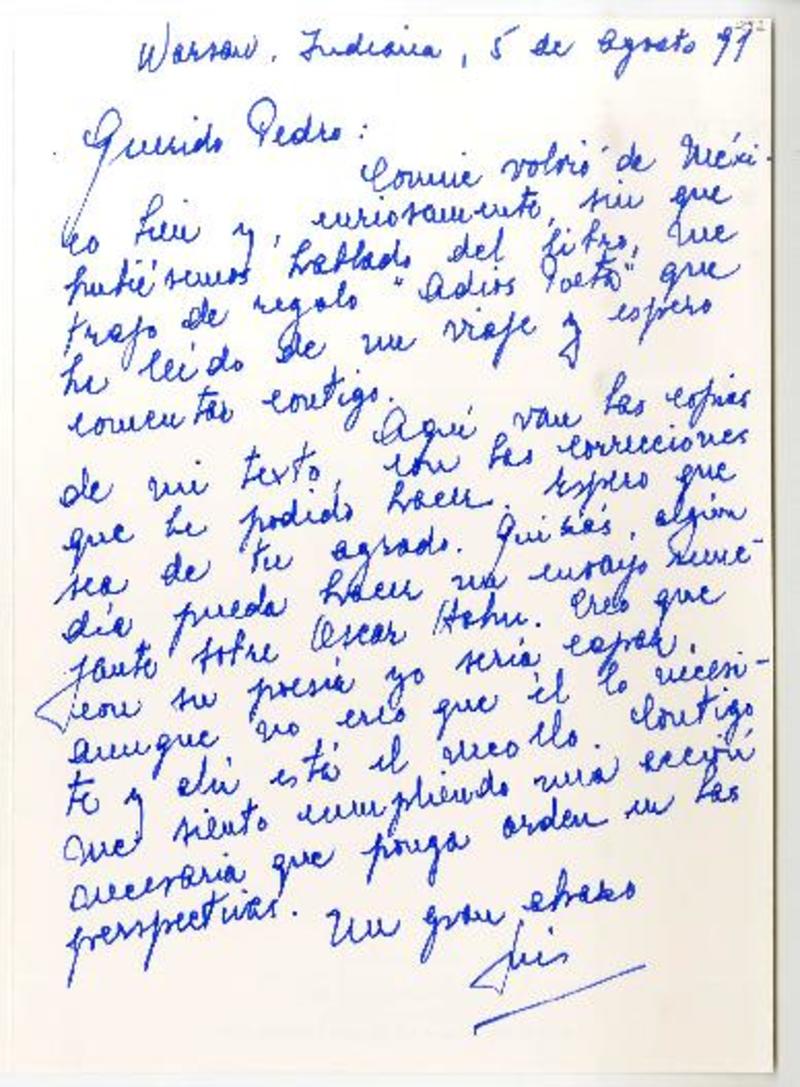 Warsaw, Indiana, 5 de agosto 91
Querido Pedro:
Connie volvió de Méxi-
co bien y, curiosamente, sin que
hubiésemos hablado del libro, me
trajo de regalo "Adios Poeta" que
he leído de un viaje y espero
comentar contigo.
Aquí van las copias
de mi texto, con las correcciones
que he podido hacer. Espero que
sea de tu agrado. Quizás, algún
día pueda hacer un ensayo seme-
jante sobre Oscar Hahn. Creo que
con su poesía yo sería capaz,
aunque no creo que él lo necesi-
te y ahí está el meollo. Contigo
me siento cumpliendo una acción
necesaria que ponga orden en las
perspectivas.
Un gran abrazo
Luis